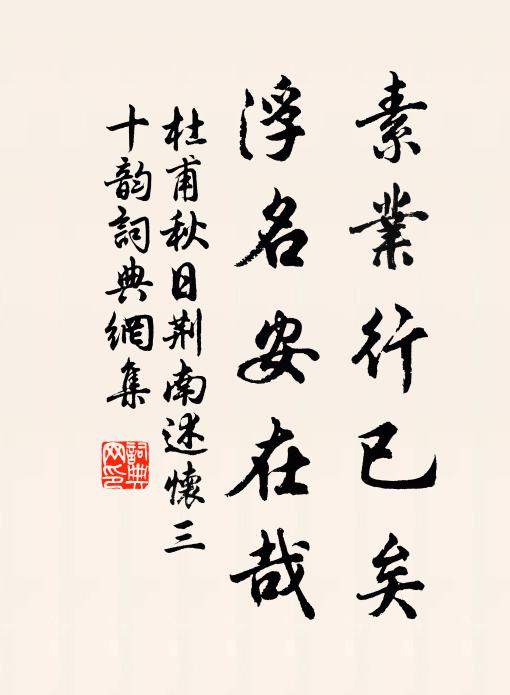 素業行已矣
浮名安在哉
杜甫秋日荆南述懷三
十韵詞典網集
詞典
网印